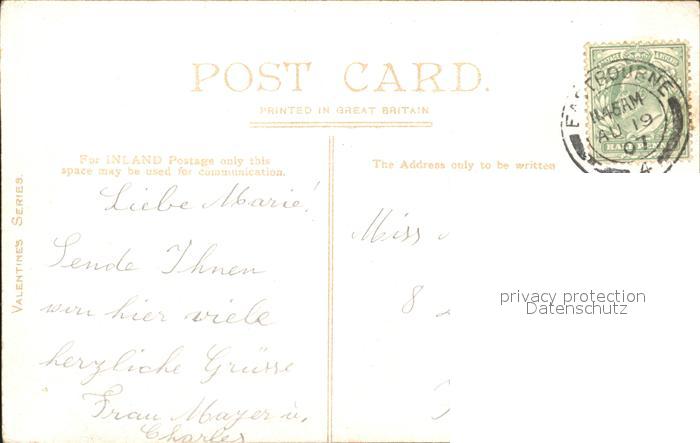 POST CARD.
PRINTED IN GREAT BRITAIN
EASTBOURNE
11.45AM
AU 19
07
4
HALFPENNY
For INLAND Postage only this
space may be used for communication.
The Address only to be written
VALENTINE'S SERIES.
Liebe Marie!
Sende Ihnen
von hier viele
herzliche Grüsse
Frau Mayer u.
Charles
Miss
8
privacy protection
Datenschutz